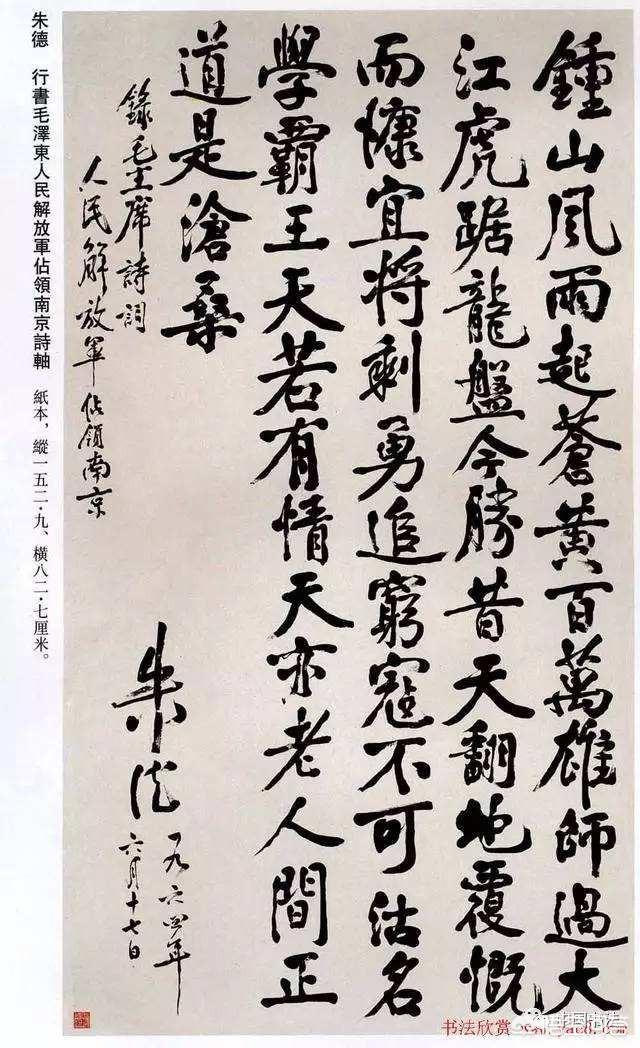 鍾山風雨起蒼黃百萬雄師過大
江虎踞龍盤今勝昔天翻地覆慨
而慷宜將剩勇追窮寇不可沽名
學霸王天若有情天亦老人間正
道是滄桑
錄毛主席詩詞
人民解放軍佔領南京
朱德
一九六四年
六月十七日
朱德 行書毛澤東人民解放軍佔領南京詩軸 紙本，縱一五二·九、橫八二·七厘米。
书法欣赏